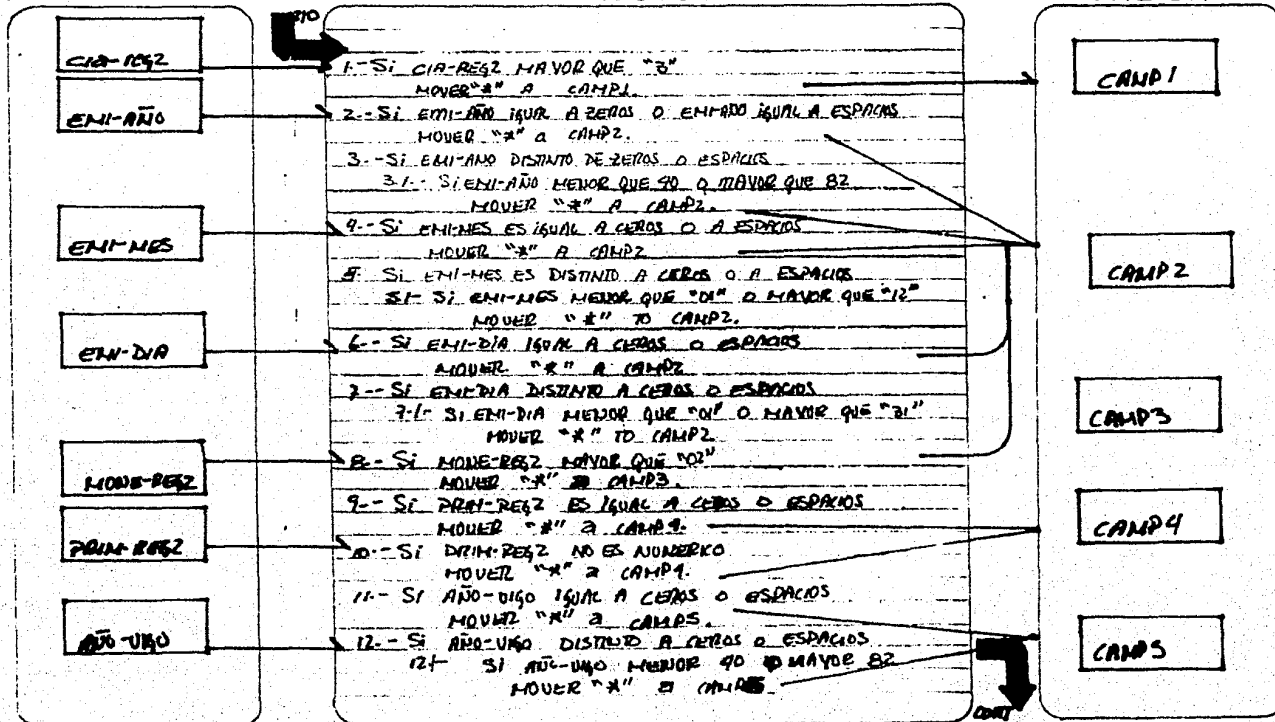 CIA-REG2
EMI-AÑO
EMI-MES
EMI-DIA
MONE-REG2
PRIM-REG2
AÑO-VIGO
1.- Si CIA-REG2 MAYOR QUE "3"
MOVER "*" A CAMP1.
2.- Si EMI-AÑO IGUAL A ZEROS O EMI-AÑO IGUAL A ESPACIOS
MOVER "*" a CAMP2.
3.- Si EMI-ANO DISTINTO DE ZEROS O ESPACIOS
3.1.- Si EMI-AÑO MENOR QUE 40 O MAYOR QUE 82
MOVER "*" A CAMP2.
4.- Si EMI-MES ES IGUAL A CEROS O A ESPACIOS
MOVER "*" A CAMP2
5- Si EMI-MES ES DISTINTO A CEROS O A ESPACIOS
5.1- Si EMI-MES MENOR QUE "01" O MAYOR QUE "12"
MOVER "*" TO CAMP2.
6.- Si EMI-DIA IGUAL A CEROS O ESPACIOS
MOVER "*" A CAMP2
7.- Si EMI-DIA DISTINTO A CEROS O ESPACIOS
7.1- Si EMI-DIA MENOR QUE "01" O MAYOR QUE "31"
MOVER "*" TO CAMP2
8.- Si MONE-REG2 MAYOR QUE "02"
MOVER "*" a CAMP3.
9.- Si PRIM-REG2 ES IGUAL A CEROS O ESPACIOS
MOVER "*" a CAMP4.
10.- Si PRIM-REG2 NO ES NUMERICO
MOVER "*" a CAMP4.
11.- Si AÑO-VIGO IGUAL A CEROS O ESPACIOS
MOVER "*" a CAMP5.
12.- Si AÑO-VIGO DISTINTO A CEROS O ESPACIOS
12.1- Si AÑO-VIGO MENOR 40 O MAYOR 82
MOVER "*" a CAMP5
CONT
CAMP1
CAMP2
CAMP3
CAMP4
CAMP5